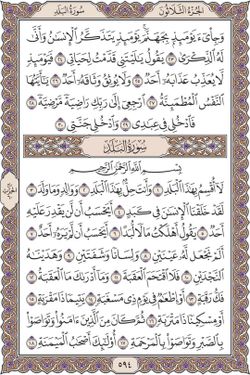 الجُزْءُ الثَّلَاثُونَ سُورَةُ البَلَدِ
وَجِاْىٓءَ يَوْمَئِذٍۭ بِجَهَنَّمَ ۚ يَوْمَئِذٍ يَتَذَكَّرُ ٱلْإِنسَٰنُ وَأَنَّىٰ
لَهُ ٱلذِّكْرَىٰ ٢٣ يَقُولُ يَٰلَيْتَنِى قَدَّمْتُ لِحَيَاتِى ٢٤ فَيَوْمَئِذٍ
لَّا يُعَذِّبُ عَذَابَهُۥٓ أَحَدٌ ٢٥ وَلَا يُوثِقُ وَثَاقَهُۥٓ أَحَدٌ ٢٦ يَٰٓأَيَّتُهَا
ٱلنَّفْسُ ٱلْمُطْمَئِنَّةُ ٢٧ ٱرْجِعِىٓ إِلَىٰ رَبِّكِ رَاضِيَةً مَّرْضِيَّةً
٢٨ فَٱدْخُلِى فِى عِبَٰدِى ٢٩ وَٱدْخُلِى جَنَّتِى ٣٠
سُورَةُ البَلَدِ
بِسْمِ ٱللَّهِ ٱلرَّحْمَٰنِ ٱلرَّحِيمِ
لَآ أُقْسِمُ بِهَٰذَا ٱلْبَلَدِ ١ وَأَنتَ حِلٌّۢ بِهَٰذَا ٱلْبَلَدِ ٢ وَوَالِدٍ وَمَا وَلَدَ ٣
لَقَدْ خَلَقْنَا ٱلْإِنسَٰنَ فِى كَبَدٍ ٤ أَيَحْسَبُ أَن لَّن يَقْدِرَ عَلَيْهِ
أَحَدٌ ٥ يَقُولُ أَهْلَكْتُ مَالًا لُّبَدًا ٦ أَيَحْسَبُ أَن لَّمْ يَرَهُۥٓ أَحَدٌ ٧
أَلَمْ نَجْعَل لَّهُۥ عَيْنَيْنِ ٨ وَلِسَانًا وَشَفَتَيْنِ ٩ وَهَدَيْنَٰهُ
ٱلنَّجْدَيْنِ ١٠ فَلَا ٱقْتَحَمَ ٱلْعَقَبَةَ ١١ وَمَآ أَدْرَىٰكَ مَا ٱلْعَقَبَةُ ١٢
فَكُّ رَقَبَةٍ ١٣ أَوْ إِطْعَٰمٌ فِى يَوْمٍ ذِى مَسْغَبَةٍ ١٤ يَتِيمًا ذَا مَقْرَبَةٍ ١٥
أَوْ مِسْكِينًا ذَا مَتْرَبَةٍ ١٦ ثُمَّ كَانَ مِنَ ٱلَّذِينَ ءَامَنُوا۟ وَتَوَاصَوْا۟
بِٱلصَّبْرِ وَتَوَاصَوْا۟ بِٱلْمَرْحَمَةِ ١٧ أُو۟لَٰٓئِكَ أَصْحَٰبُ ٱلْمَيْمَنَةِ ١٨
٥٩٤